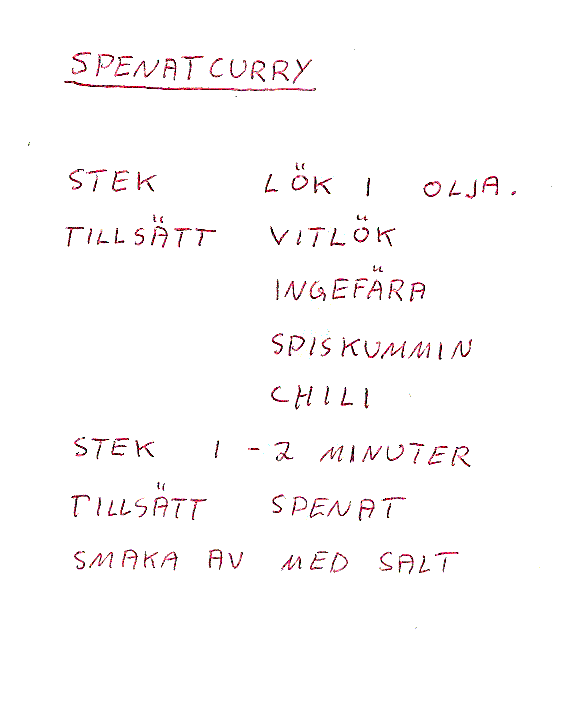 SPENATCURRY
STEK LÖK I OLJA.
TILLSÄTT VITLÖK
INGEFÄRA
SPISKUMMIN
CHILI
STEK 1-2 MINUTER
TILLSÄTT SPENAT
SMAKA AV MED SALT